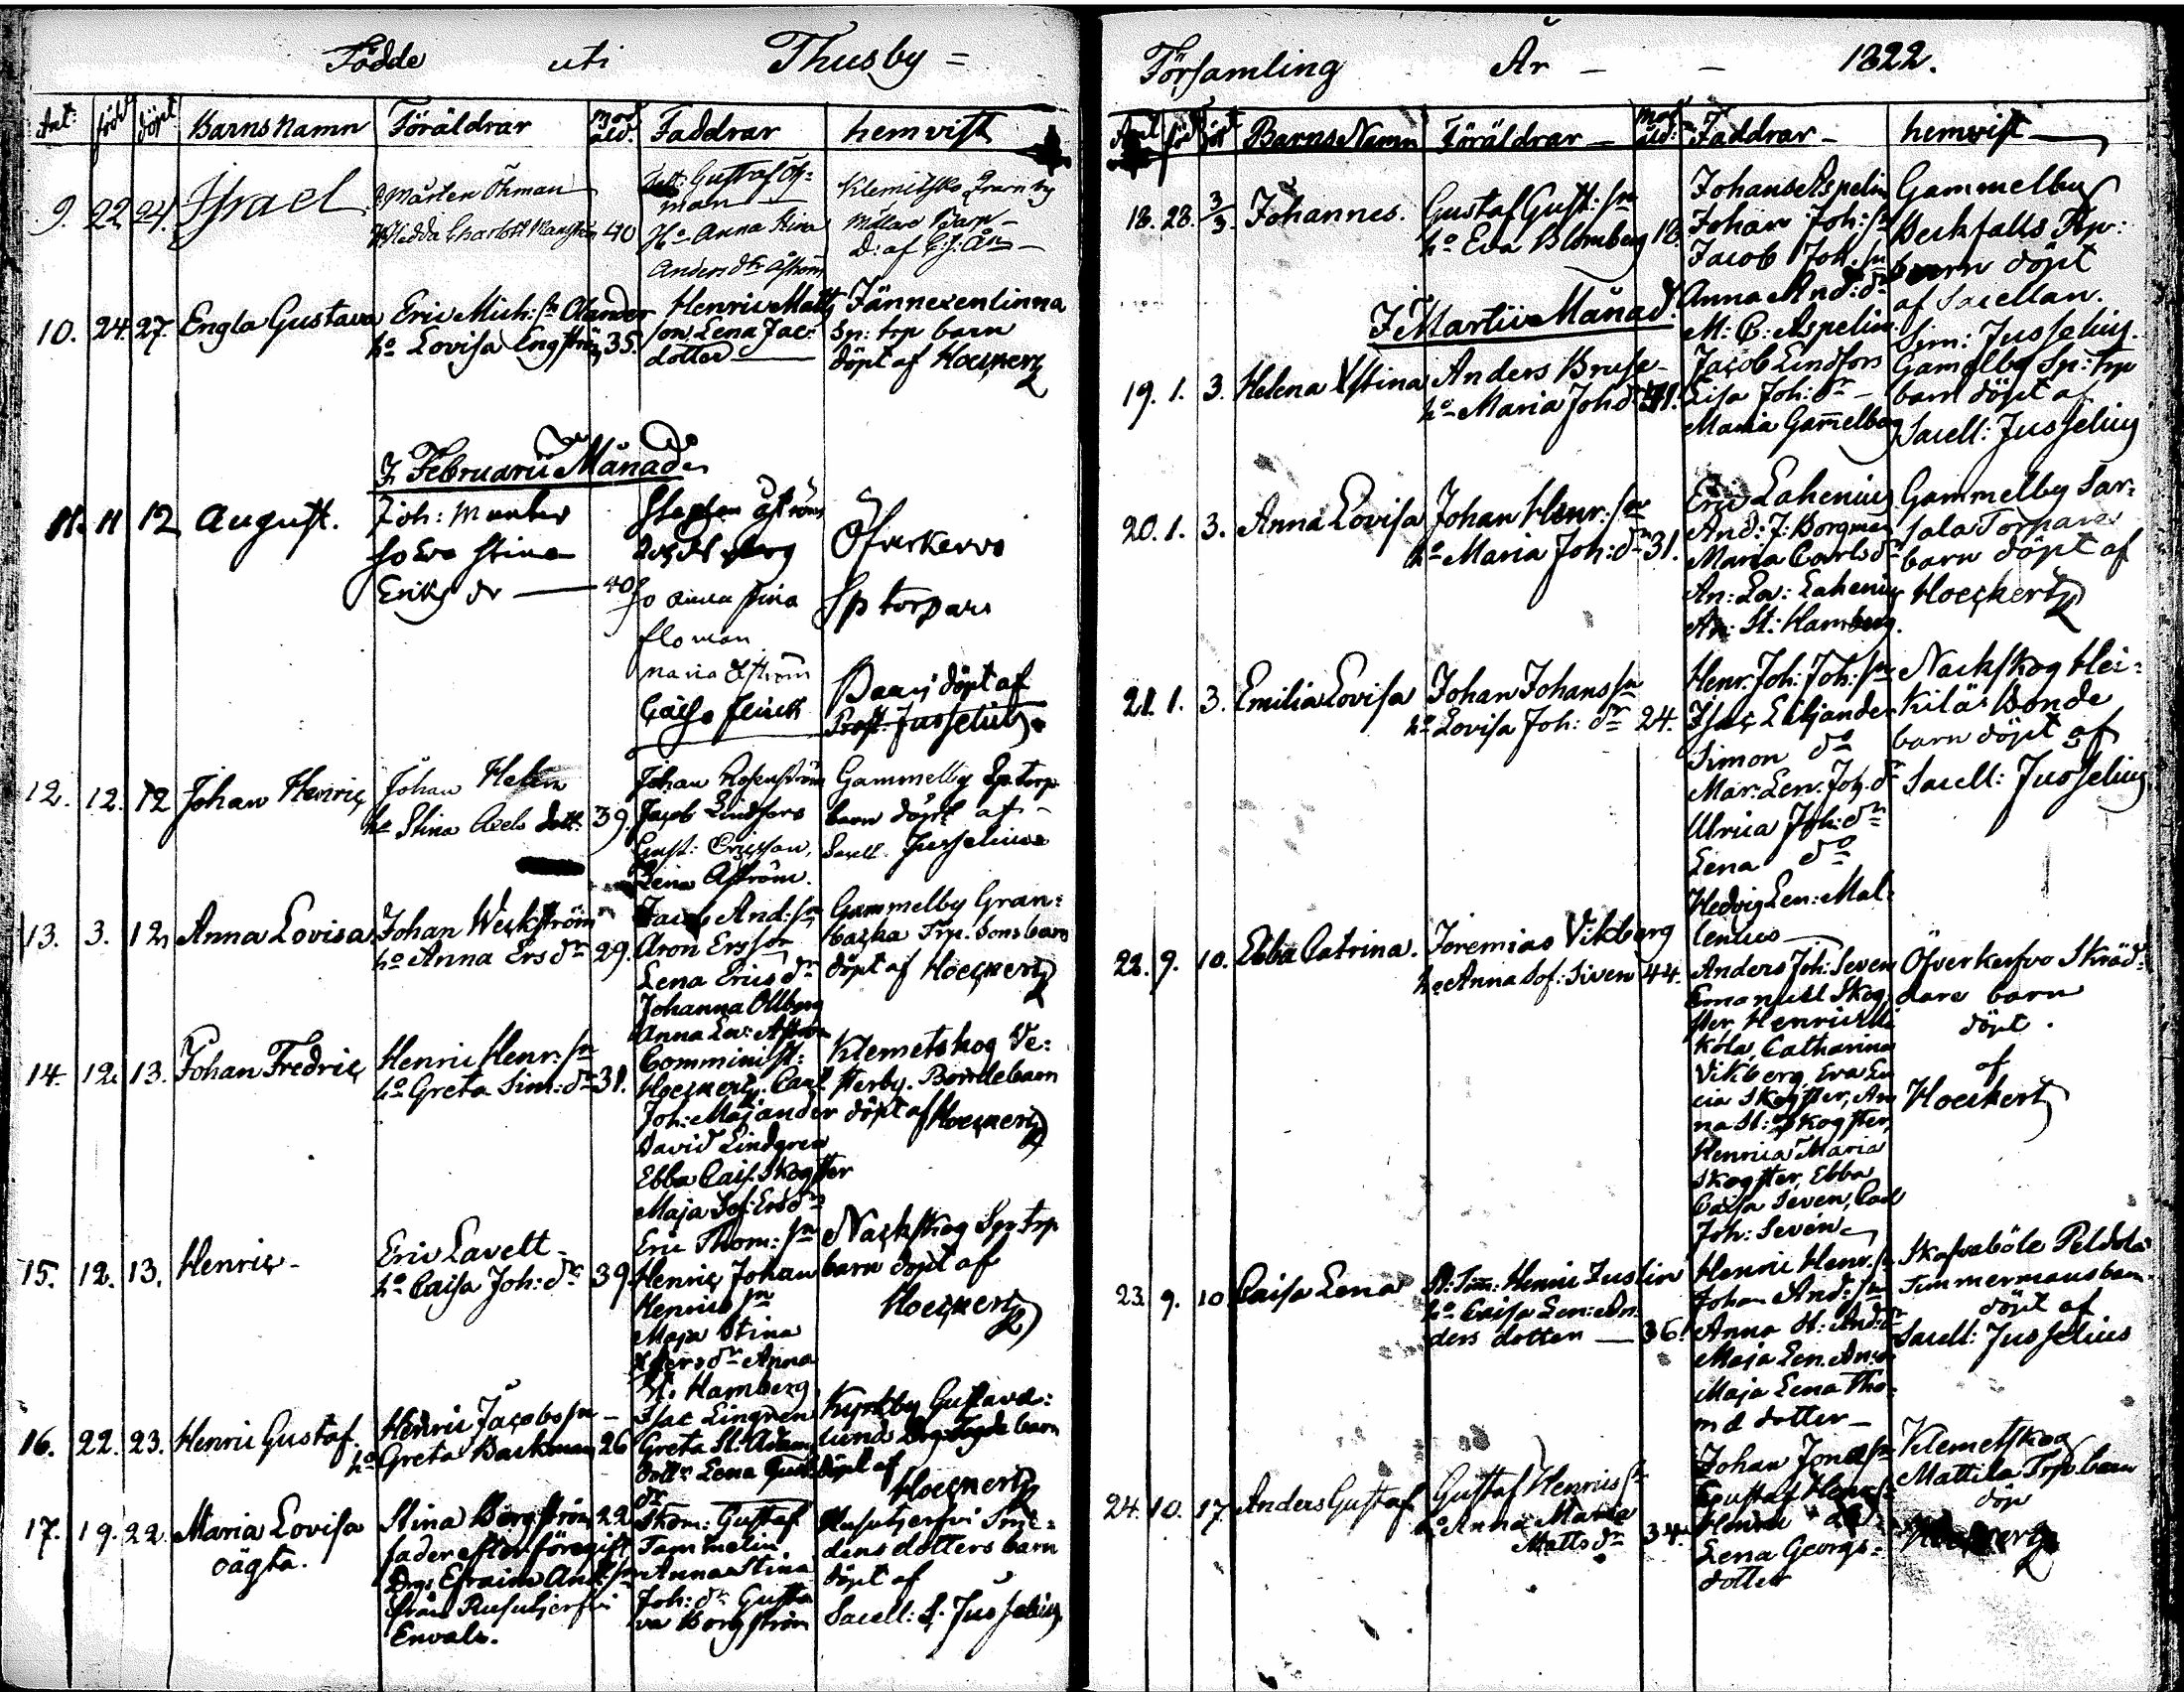 Födde uti Thusby =
Ant: född döpt Barns Namn Föräldrar Mod. åld. Faddrar hemvist
9. 22 24. Israel Mårten Öhman
Gustaf Öh=
man
Hedda Charlott 40 Ho Anna Stina
Anders dr Åström
Klemetsko
10. 24. 27. Engla Gustava Eric Mich: sn
ho Lovisa Engström 35.
Henric Matts
son Lena Jac:
dotter
Sp: trp barn
döpt af Hoeckertz
I Februarii Månad
11. 11 12 August. Joh:
ho Eva Stina
Eriks dr 40
Stephan Åström
ho Anna Stina
Floman
Maria Åström
Cajsa Flinck
Öfverkervo
Sp torpare
Barn döpt af
Jusselius
12. 12. 12 Johan Henric Johan
ho Stina Axels dott. 39.
Johan Rosenström
Jacob Lindfors
Gust: Ericsson,
Lena Åström.
Gammelby Sp: Torp
barn döpt af
Sacell: Jusselius
13. 3. 12. Anna Lovisa Johan Weckström
ho Anna Ers dr 29.
Jacob And: sn
Aron Ersson
Lena Erics dr
Johanna Ollberg
Anna Lov: Åström
Gammelby Gran=
backa Trp. Sons barn
döpt af Hoeckertz
14. 12. 13. Johan Fredric Henric Henr: sn
ho Greta Sim: dr 31.
Comminist:
Hoeckertz. Carl
Joh: Majander
David Lindgren
Ebba Cajs. Skogster
Maja Sof: Ers dr
Klemetskog Ve:
sterby. Bonde barn
döpt af Hoeckertz
15. 12. 13. Henric Eric Lavett
ho Caisa Joh: dr 39.
Eric Thom: sn
Henric Johan
Henrics sn
Maja Stina
dr Anna
St. Hamberg
Nackskog Sp: trp
barn döpt af
Hoeckertz
16. 22. 23. Henric Gustaf Henric Jacobs sn
ho Greta Backman 26
Isac Lingren
Greta St: Adam
dottr Lena Gust
dr
Kyrkby Gustavs:
lunds barn
döpt af
Hoeckertz
17. 19. 22. Maria Lovisa
oägta.
Stina Bergström 22
fader efter föregift
Drg: Efraim And: sn
från Rusutjerfvi
Envals.
Thom: Gustaf
Tammelin
Anna Stina
Joh: dr Gusta
va Borgström
Rusutjerfvi Sme=
dens dotters barn
döpt af
Sacell: S. Jusselius
Församling År - - 1822.
Ant föd döpt Barns Namn Föräldrar Mod. åld: Faddrar hemvist
18. 28. 3/3. Johannes. Gustaf Gust: sn
ho Eva Blomberg 18.
Johans Aspelin
Johan Joh: sn
Jacob Joh: sn
Anna And: dr
M: C: Aspelin
Gammelby
Beckfalls Trp:
barn döpt
af Sacellan.
Sim: Jusselius.
I Martii Månad.
19. 1. 3. Helena Xstina Anders Bruse
ho Maria Joh dr 31.
Jacob Lindfors
Lisa Joh: dr
Maria Gam̄elberg
Gamelby Sp: trp
barn döpt af
Sacell: Jusselius
20. 1. 3. Anna Lovisa Johan Henr: sn
ho Maria Joh: dr 31.
Eric Lahenius
And: J: Borgman
Maria Carls dr
An: Lov: Lahenius
An: St: Hamberg.
Gammelby Sar:
sala Torpare
barn döpt af
Hoeckertz
21. 1. 3. Emilia Lovisa Johan Johans sn
ho Lovisa Joh: dr 24.
Henr. Joh: Joh: sn
Isac Liljander
Simon do
Mar. Len. Joh. dr
Ulrica Joh: dr
Lena do
Hedvig Len: Mal=
lenius
Nackskog Hei=
kilä Bonde
barn döpt af
Sacell: Jusselius
22. 9. 10. Ebba Catrina. Jeremias Vikberg
ho Anna Sof: Siven 44.
Anders Joh: Seven
Emanuel Skog
ster, Henric
kola, Catharina
Vikberg, Eva Lu
cia Skogster, An
na St: Skogster,
Henrica Maria
Skogster, Ebba
Cajsa Seven, Carl
Joh: Sevén
Öfverkerfvo Skräd=
dare barn
döpt.
af
Hoeckertz
23. 9. 10 Caisa Lena St: Tim̄: Henric Juslin
ho Caisa Len: An=
ders dotter 36.
Henric Henr. sn
Johan And: sn
Anna St: And: dr
Maja Len. An: dr
Maja Lena Tho=
m d dotter
Skafvaböle Peldola
Timmermans barn
döpt af
Sacell: Jusselius
24. 10. 17. Anders Gustaf Gustaf Henrics sn
ho Anna Maria
Matts dr 34.
Johan Jonæ sn
Gustaf Henr: sn
Henric do
Lena Georgs=
dotter
Klemetskog
Mattila Trp barn
döp
Hoeckertz